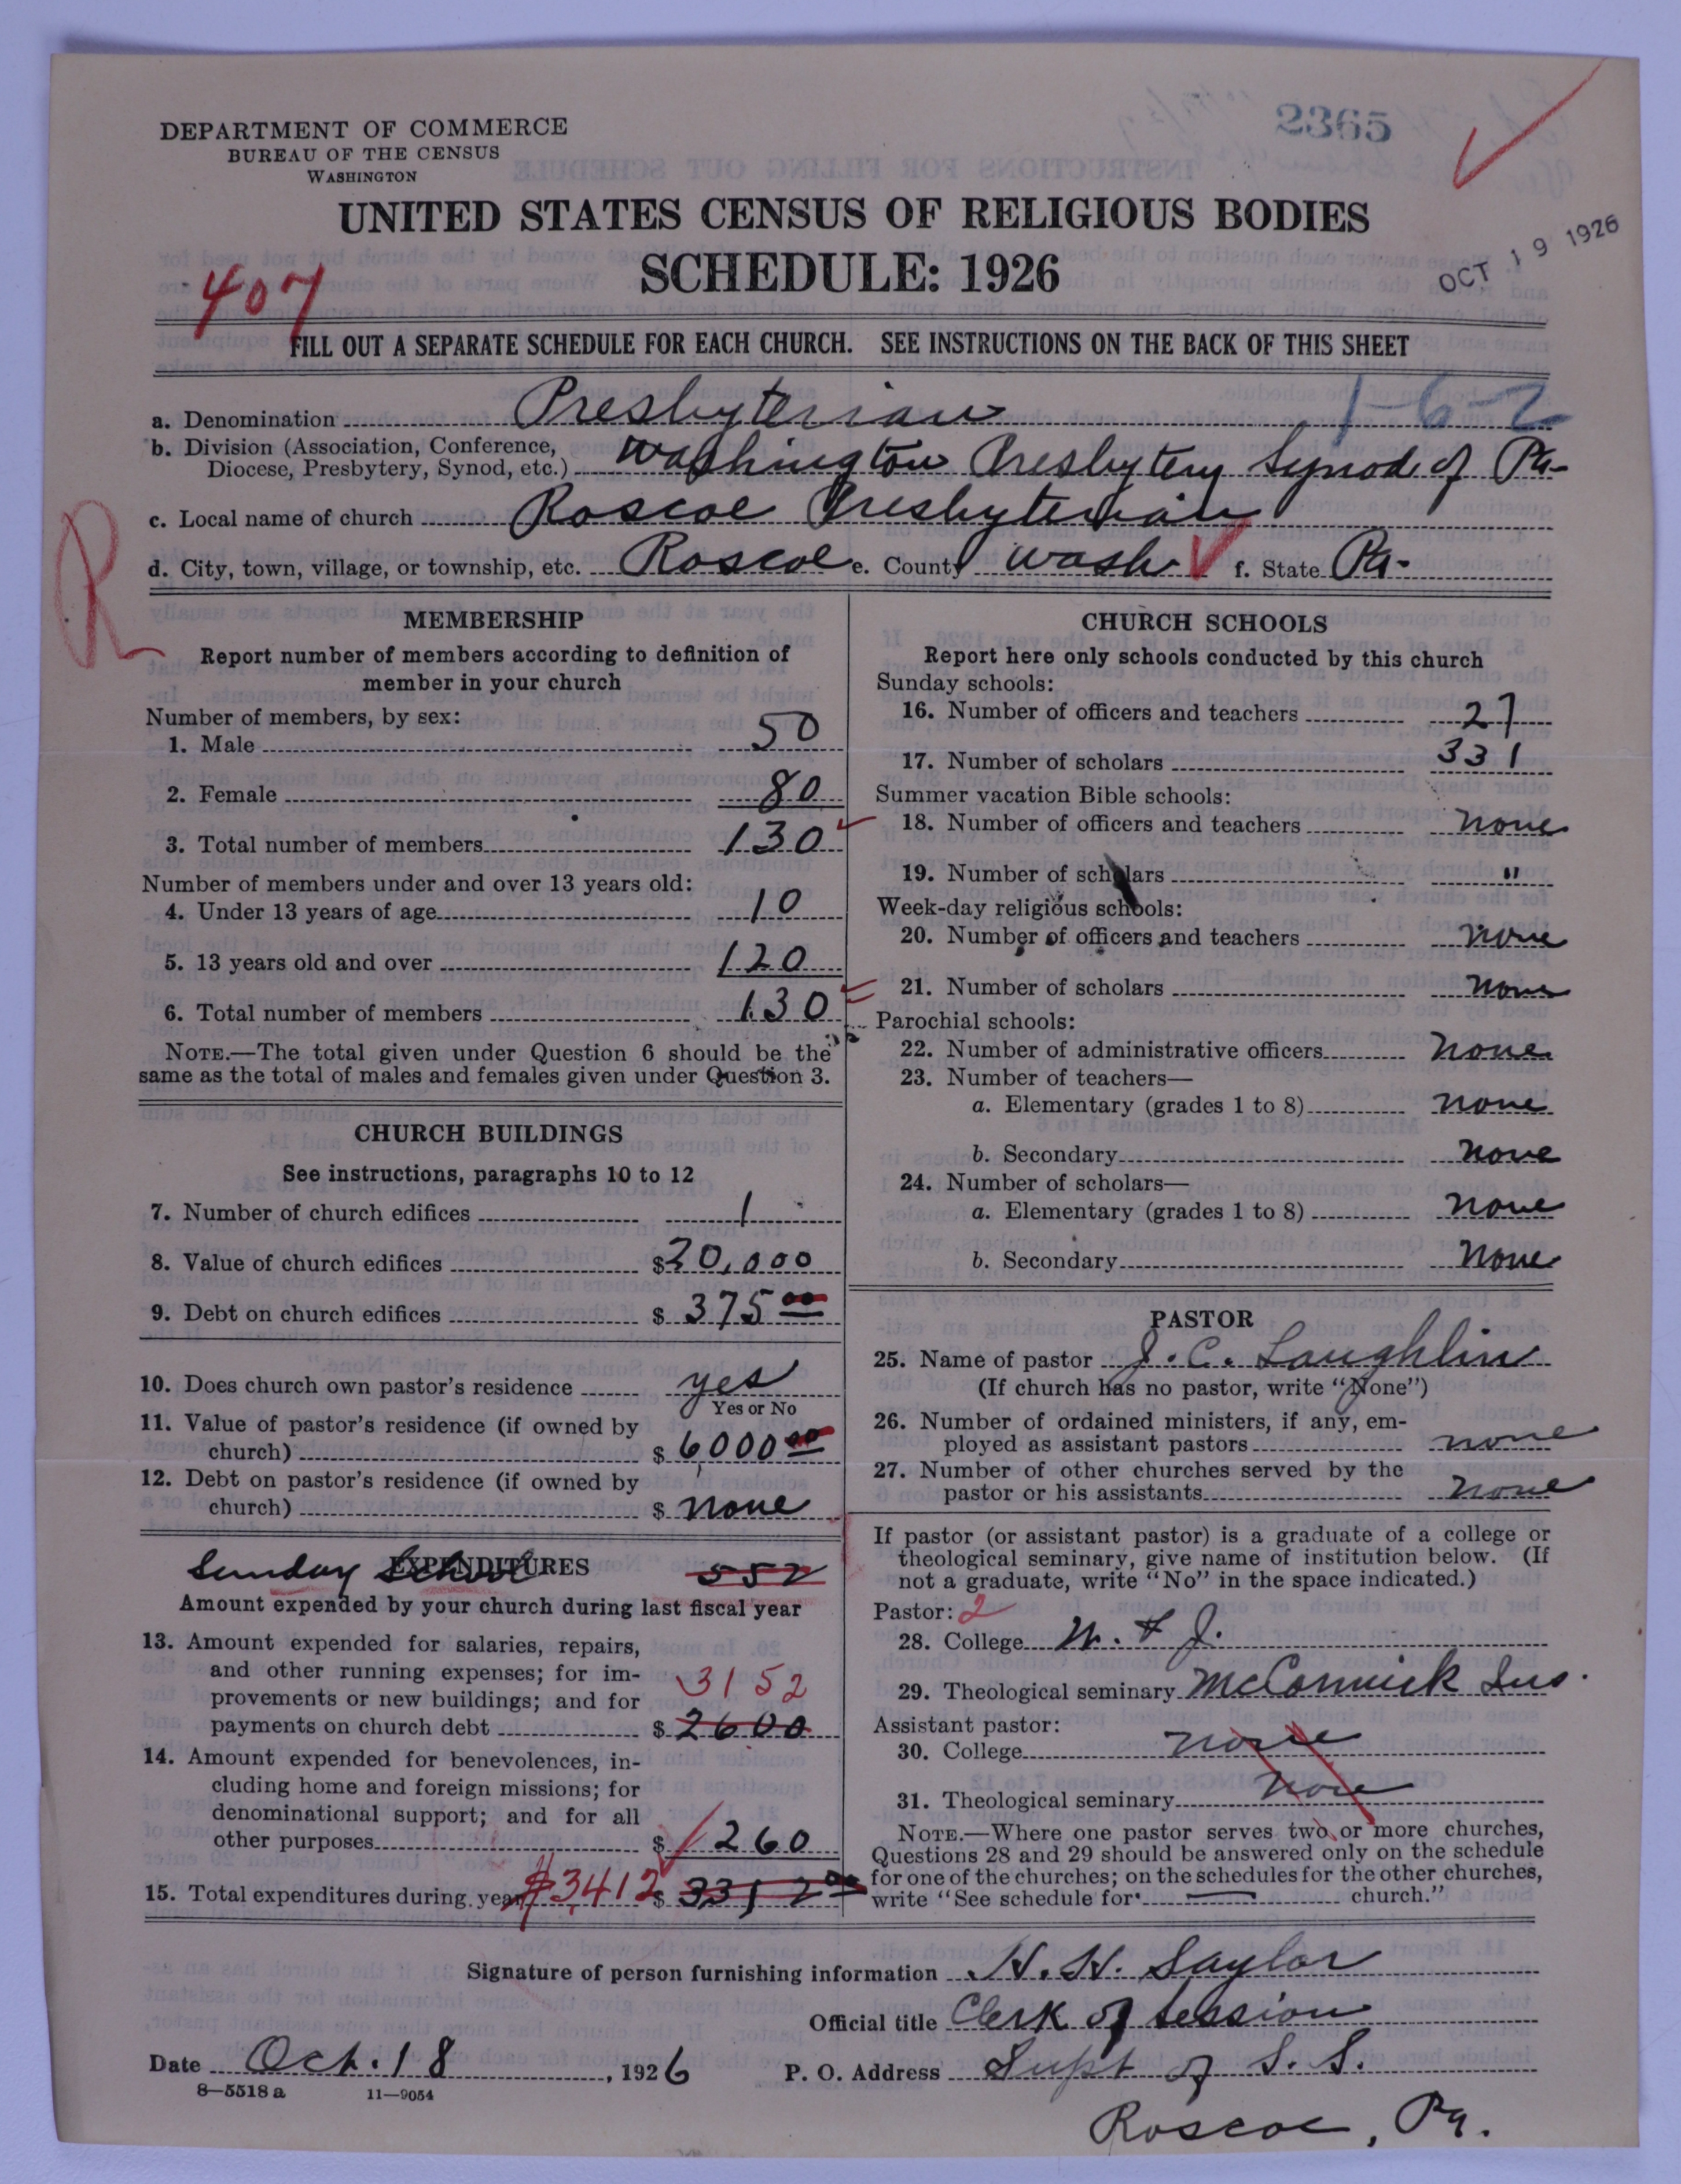 2365
DEPARTMENT OF COMMERCE
BUREAU OF THE CENSUS
WASHINGTON
UNITED STATES CENSUS OF RELIGIOUS BODIES
SCHEDULE: 1926
OCT 19 1926
407
FILL OUT A SEPARATE SCHEDULE FOR EACH CHURCH. SEE INSTRUCTIONS ON THE BACK OF THIS SHEET
1-6-2
a. Denomination Presbyterian
b. Division (Association, Conference,
Diocese, Presbytery, Synod, etc.) Washington Presbytery Synod of Pa-
c. Local name of church Roscoe Presbyterian
d. City, town, village, or township, etc. Roscoe e. County Wash. f. State Pa.
R
MEMBERSHIP
Report number of members according to definition of
member in your church
Number of members, by sex:
1. Male 50
2. Female 80
3. Total number of members 130
Number of members under and over 13 years old:
4. Under 13 years of age 10
5. 13 years old and over 120
6. Total number of members 130
NOTE.—The total given under Question 6 should be the
same as the total of males and females given under Question 3.
CHURCH BUILDINGS
See instructions, paragraphs 10 to 12
7. Number of church edifices 1
8. Value of church edifices $20,000
9. Debt on church edifices $ 375 00
10. Does church own pastor's residence yes
Yes or No
11. Value of pastor's residence (if owned by
church) $ 6000 00
12. Debt on pastor's residence (if owned by
church) $ none
EXPENDITURES
Sunday School 552
Amount expended by your church during last fiscal year
13. Amount expended for salaries, repairs,
and other running expenses; for im-
provements or new buildings; and for 3152
payments on church debt $ 2600
14. Amount expended for benevolences, in-
cluding home and foreign missions; for
denominational support; and for all
other purposes $ 260
15. Total expenditures during year $3412 $ 3312 00
CHURCH SCHOOLS
Report here only schools conducted by this church
Sunday schools:
16. Number of officers and teachers 27
17. Number of scholars 331
Summer vacation Bible schools:
18. Number of officers and teachers none
19. Number of scholars "
Week-day religious schools:
20. Number of officers and teachers none
21. Number of scholars none
Parochial schools:
22. Number of administrative officers none
23. Number of teachers—
a. Elementary (grades 1 to 8) none
b. Secondary none
24. Number of scholars—
a. Elementary (grades 1 to 8) none
b. Secondary none
PASTOR
25. Name of pastor J. C. Laughlin
(If church has no pastor, write "None")
26. Number of ordained ministers, if any, em-
ployed as assistant pastors none
27. Number of other churches served by the
pastor or his assistants none
If pastor (or assistant pastor) is a graduate of a college or
theological seminary, give name of institution below. (If
not a graduate, write "No" in the space indicated.)
Pastor: 2
28. College W. & J.
29. Theological seminary McCormick
Assistant pastor:
30. College none
31. Theological seminary none
NOTE.—Where one pastor serves two or more churches,
Questions 28 and 29 should be answered only on the schedule
for one of the churches; on the schedules for the other churches,
write "See schedule for church."
Signature of person furnishing information H. H. Saylor
Official title Clerk of Session
Date Oct. 18, 1926 P. O. Address Supt of S. S.
8—5518 a 11—9054
Roscoe, Pa.